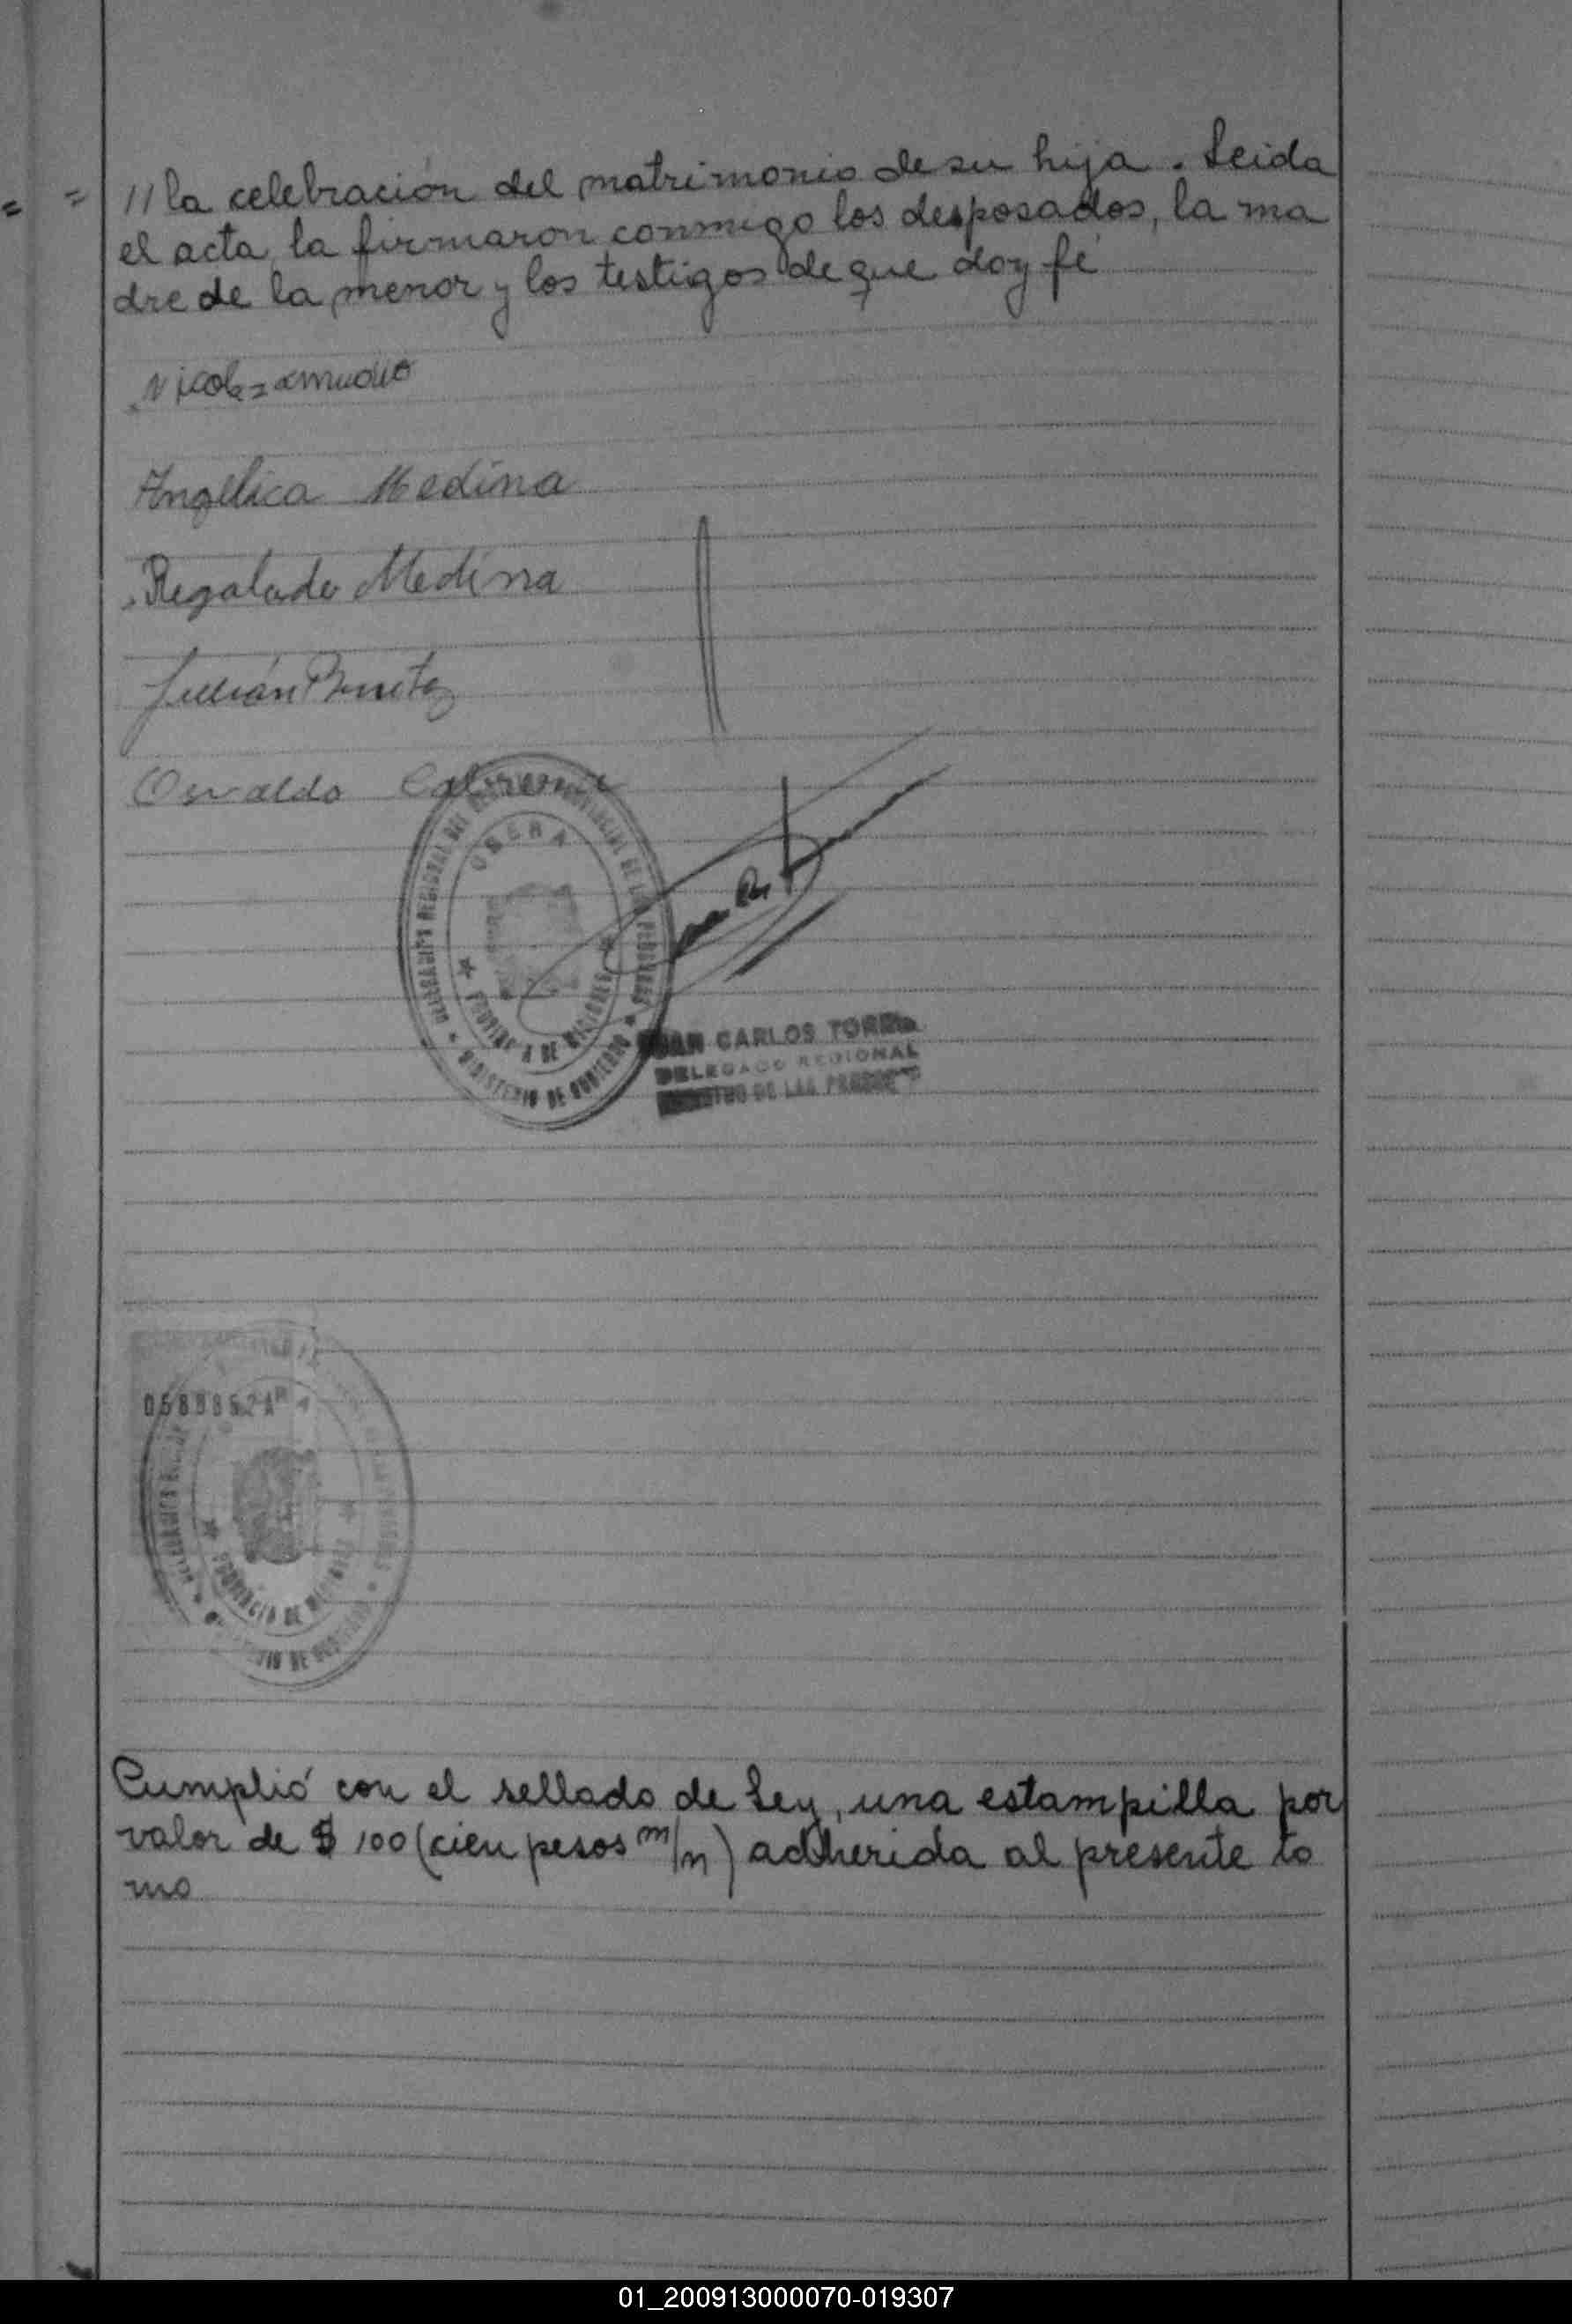 = = // la celebración del matrimonio de su hija. Leida
el acta, la firmaron conmigo los desposados, la ma
dre de la menor y los testigos de que doy fé
Angelica Medina
Regalada Medina
Julián Benitez
Osvaldo
OBERA
PROVINCIA DE MISIONES
MINISTERIO DE GOBIERNO
JUAN CARLOS TORRES
DELEGADO REGIONAL
REGISTRO DE LAS PERSONAS
PROVINCIA DE MISIONES
Cumplió con el sellado de Ley, una estampilla por
valor de $ 100 (cien pesos m/n) adherida al presente to
mo
01_200913000070-019307